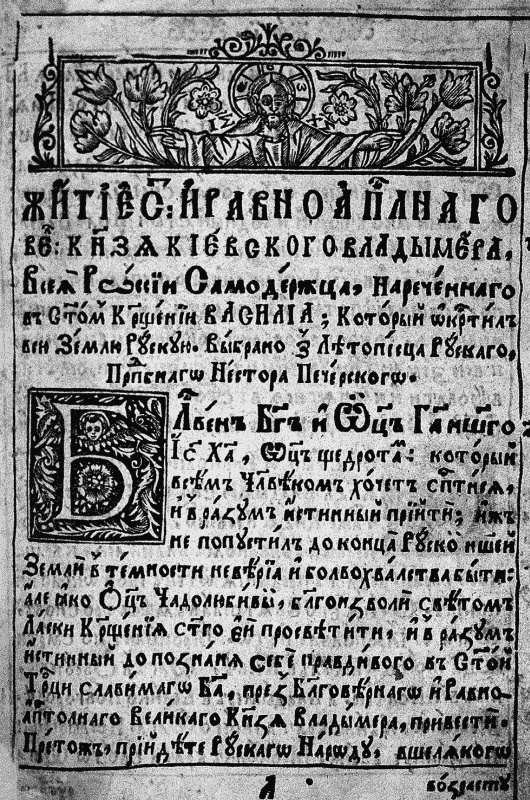 ЖИТІЄ С҃: И РАВНОАП҃ЛНАГО
ВЕ҃: КН҃ЗѦ КІЕВСКОГО ВЛАДЫМЕ́РА,
Всеѧ̀ Рѡссі́и Самоде́ржца, Нарече́ннаго
въ Ст҃о́мъ Крⷳще́ніи ВАСИЛІА; Кото́рый ѡ҆крⷭти́лъ
всю̀ Зе́млю Рꙋ́скую. Вы́брано з̾ Лѣтопи́сца Рꙋ́скаго,
Прпⷣбнагѡ Не́стора Пече́рскогѡ.
БЛⷭ҇ве́нъ Бг҃ъ и҆ Ѿц҃ъ Гⷭ҇а на́шего
Іс҃ Хⷭ҇а, Ѿц҃ъ щедро́тъ: кото́рый
всѣ́мъ Чл҃вѣ́комъ хо́четъ сп҃ти́сѧ,
и҆ въ ра́зумъ и҆́стинный прійти́; и҆́жъ
не попусти́лъ до конца̀ Рꙋ́ско́й на́шей
Земли́ в̾ те́мности невѣ́рїѧ и҆ болвохва́лства бы́ти:
а҆ле ꙗ҆́ко Ѻ҆ц҃ъ Чадолюби́вый, бл҃гоизво́лил свѣ́томъ
Ла́ски Крⷳще́нїѧ ст҃го є҆ѝ просвѣти́ти, и҆ в̾ ра́зумъ
и҆́стинный до позна́нѧ себѐ правди́вого въ Ст҃о́й
Трⷪ҇ци сла́вимагѡ Бг҃а, пре́з̾ Бл҃говѣ́рнагѡ и҆ Равно-
ап҃толнаго Вели́каго Кн҃зѧ Влады́мера, привестѝ.
Прето́жъ, прійдѣ́те Рꙋ́скагѡ Наро́ду, вшеля́когѡ
А
во́зрасту